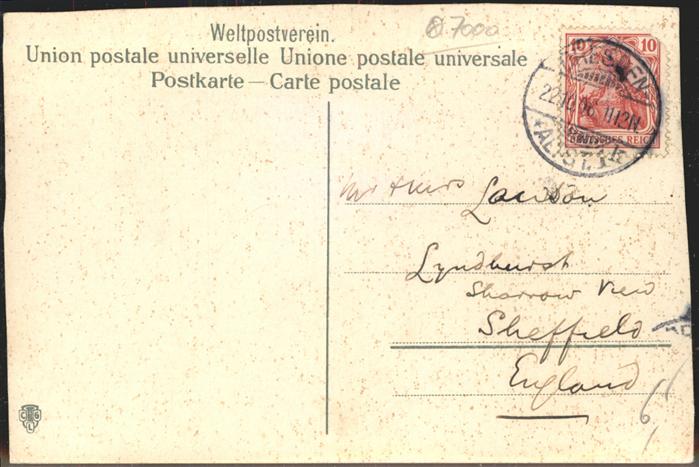 Weltpostverein.
7000
Union postale universelle Unione postale universale
Postkarte — Carte postale
10 10
DEUTSCHES REICH
DRESDEN
22.10.06 11-12N
* ALTST. 14
Lawson
Lyndhurst
Sharrow View
Sheffield
England